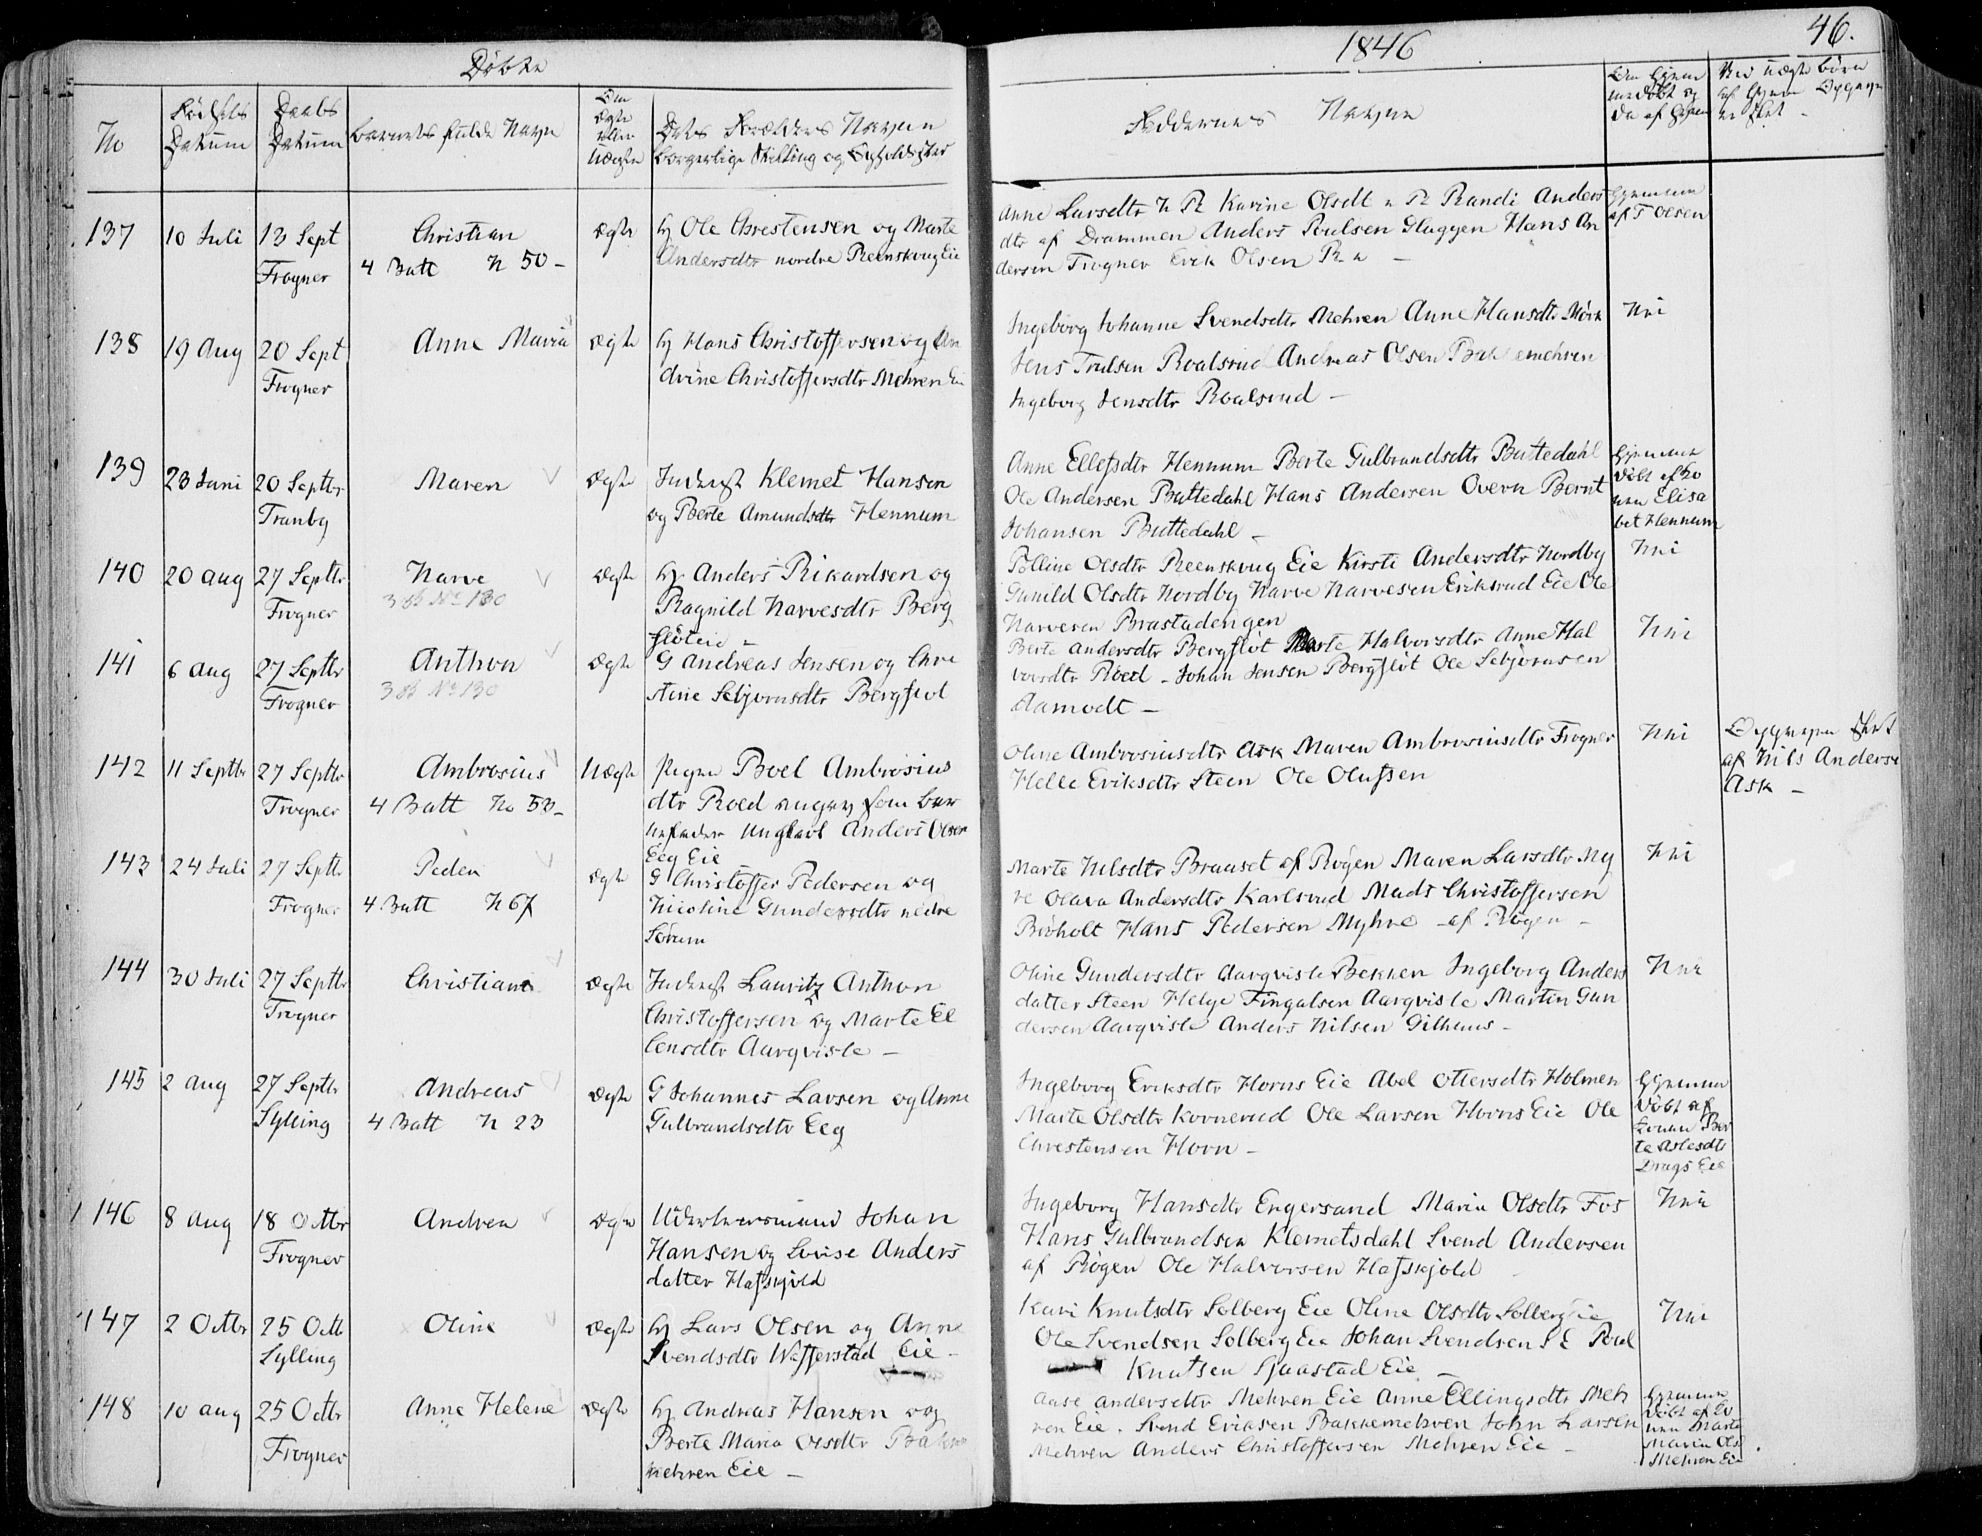 Døbte
1846
46.
No
Fødsels
Datum
Daabs
Datum
Barnets fulde Navn
Om
Ægte
eller
Uægte
Dets Forældres Navne
borgerlige Stilling og Opholdssted
Faddernes Navne
Om hjem
medøbt og
Ved uægte børn
137
10 Juli
13 Sept
Frogner
Christian
4 Batt N 50 -
ægte
Ole Christensen og Marte
Andersdtr nordre Reenskoug Eie
Anne Larsdtr N R Karine Olsdt n R Randi Anders
dtr af Drammen Anders Poulsen Glaggen Hans An
dersen Frogner Erik Olsen R n -
hjemme
af T Olsen
138
19 Aug
20 Sept
Frogner
Anne Maria
ægte
Hans Christoffersen og An
drine Christoffersdtr Mehren Eie
Ingeborg Johanne Svendsdtr Mehren Anne Hansdtr Mörk
Jens Trulsen Roalsrud Andreas Olsen Bakkemehren
Ingeborg Jensdtr Roalsrud -
Nei
139
23 Juni
20 Septbr
Tranby
Maren
ægte
Inderst Klemet Hansen
og Berte Amundsdtr Hennum
Anne Ellefsdtr Hennum Berte Gulbrandsdtr Buttedahl
Ole Andersen Buttedahl Hans Andersen Overn Bernt
Johansen Buttedahl -
hjemme
döbt af Ko
nen Elisa
bet Hennum
140
20 aug
27 Septbr
Frogner
Narve
3 No 130
ægte
Anders Rikardsen og
Ragnild Narvesdtr Berg
flöteie -
Polline Olsdtr Reenskoug Eie Kirsti Andersdtr Nordby
Gunild Olsdtr Nordby Narve Narvesen Eriksrud Eie Ole
Narvesen Brastadengen
Nei
141
6 aug
27 Septbr
Frogner
Anthon
3 No 130
ægte
G Andreas Jensen og Chri
stine Sebjörnsdtr Bergflot
Berte Andersdtr Bergflöt Marte Halvorsdtr Anne Hal
vorsdtr Röed - Johan Jensen Bergflöt Ole Sebjörnsen
Aamodt -
Nei
142
11 Septbr
27 Septbr
Frogner
Ambrosius
4 Batt No 53 -
Uægte
Pigen Boel Ambrosius
dtr Roed angav som bar
nefader Ungkarl Anders Olsen
Eeg Eie
Oline Ambrosiusdtr Ask Maren Ambrosiusdtr Frogner
Helle Eriksdtr Steen Ole Olufsen
Nei
Opgaven skeet
af Nils Anderse
Ask -
143
24 Juli
27 Septbr
Frogner
Peder
4 Batt N 67
ægte
G Christoffer Pedersen og
Nicoline Gundersdtr nedre
Sörum
Marte Nilsdtr Brauset af Rögen Maren Larsdtr My
re Olava Andersdtr Karlsrud Mads Christoffersen
Böholt Hans Pedersen Myhre - af Rögen -
Nei
144
30 Juli
27 Septbr
Frogner
Christiane
ægte
Inderst Lauritz Anthon
Christoffersen og Marte El
lensdtr Aarqvisle -
Oline Gundersdtr Aarqvisle Bekken Ingeborg Anders
datter Steen Helge Fingalsen Aarqvisle Martin Gun
dersen Aarqvisle Anders Nilsen Gilhuus -
Nei
145
2 Aug
27 Septbr
Sylling
Andreas
4 Batt N 23
ægte
G Johannes Larsen og Anne
Gulbrandsdtr Eeg
Ingeborg Eriksdtr Horns Eie Abel Ottersdtr Holmen
Marte Olsdtr Kornerud Ole Larsen Horns Eie Ole
Christensen Horn -
hjemme
döbt af
Konen Ber
te Aslesdtr
Drags Eie
146
8 Aug
18 Octbr
Frogner
Andrea
ægte
Haandværksmand Johan
Hansen og Lovise Anders
datter Hafskjold
Ingeborg Hansdtr Engersand Maria Olsdtr Fos
Hans Gulbrandsen Klemetsdahl Svend Andersen
af Rögen Ole Halvorsen Hafskjold
Nei
147
2 Octbr
25 Octb
Sylling
Oline
ægte
Lars Olsen og Anne
Svendsdtr Wefferstad Eie -
Kari Knutsdtr Solberg Eie Oline Olsdtr Solberg Eie
Ole Svendsen Solberg Eie Johan Svendsen S E Poul
Knutsen Sjaastad Eie -
Nei
148
10 aug
25 Octbr
Frogner
Anne Helene
ægte
Andreas Hansen og
Berte Maria Olsdtr Bakke
mehren Eie -
Aase Andersdtr Mehren Eie Anne Ellingsdtr Meh
ren Eie. Svend Eriksen Bakkemehren John Larsen
Mehren Anders Christoffersen Mehren Eie -
hjemme
döbt af Ko
nen Marte
Maria Ols
Mehren Eie